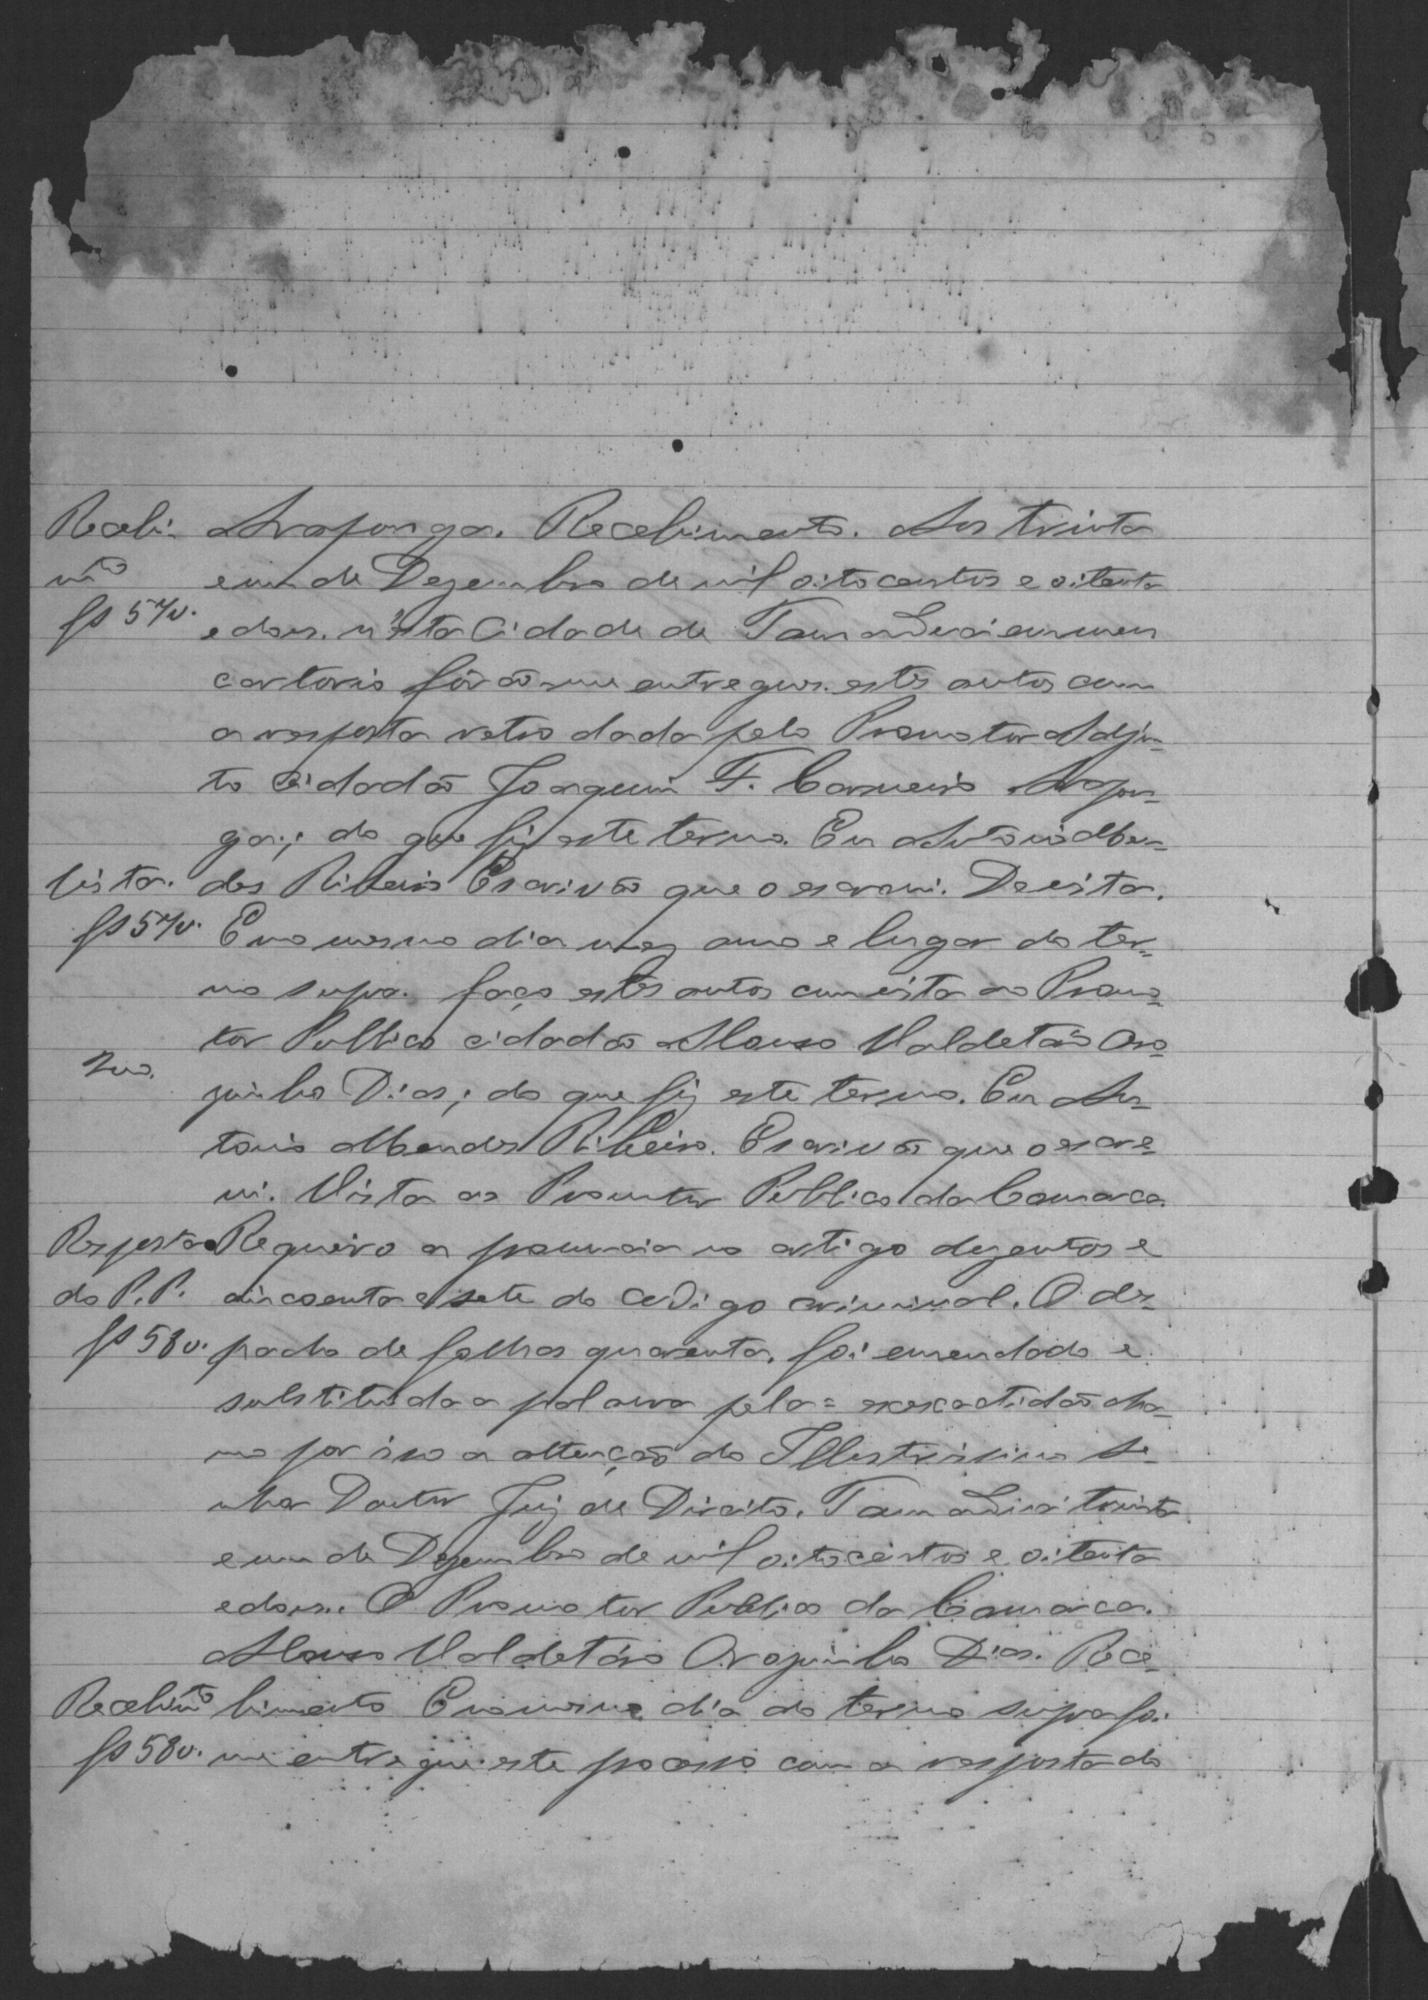 Recebi- Araponga. Recebimento. Aos trinta
mto e um de Dezembro de mil oitocentos e oitenta
fs 57v. e dois. n'esta Cidade de Tamanduá em meu
cartorio fôrão me entregues. estes autos com
a resposta retro dada pelo Promotor Adjun-
to Cidadão Joaquim F. Carneiro Arapon-
ga; do que fiz este termo. Eu Antonio Men-
Vista. des Ribeiro Escrivão que o escrevi. De vista.
fs 57v. E no mesmo dia mez anno e lugar do ter-
mo supra. faço estes autos com vista ao Promo-
tor Publico cidadão Afonso Valdetáro Ora-
junho Dias; do que fiz este termo. Eu An-
tonio Mendes Ribeiro. Escrivão que o escre-
vi. Vista ao Promotor Publico da Comarca.
Resposta Requeiro a pronuncia no artigo dezentos e
do P. P. cincoenta e sete do codigo criminal. O des-
fs 58v. pacho de folhas quarenta. foi emendado e
substituida a palavra pela = exactidão cha-
mo por isso a attenção do Illustrissimo Se-
nhor Doutor Juiz de Direito. Tamanduá trinta
e um de Dezembro de mil oitocentos e oitenta
e dois. O Promotor Publico da Comarca.
Afonso Valdetáro Orajunho Dias. Rece-
Recebimto bimento E no mesmo dia do termo supra foi
fs 58v. me entregue este processo com a resposta do